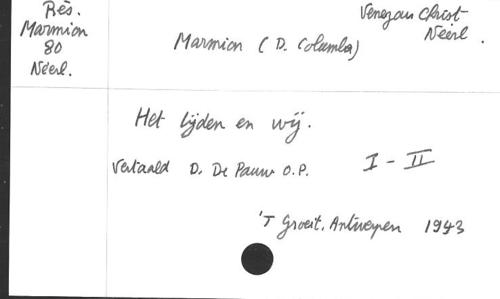 Rés.
Marmion
80
Néerl.
Christ
Néerl.
Marmion (D. Columba)
Het lijden en wij.
Vertaald D. De Pauw O.P. I - II
'T Groeit, Antwerpen 1943